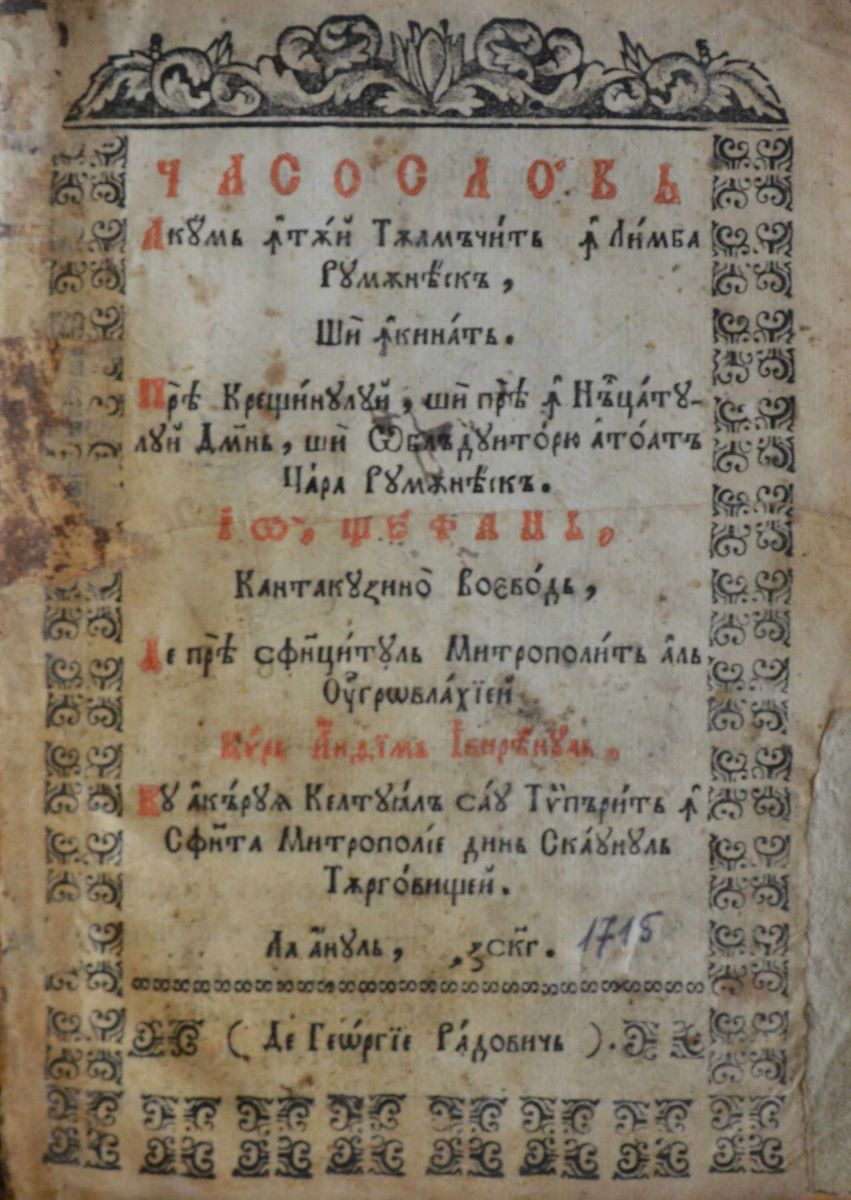 ЧАСОСЛО́ВЬ
Аку́мь ꙟ҆тѫ́й Тѫлмъчи́ть ꙟ҆ Ли́мба
Румѫнѣ́скъ,
Ши ꙟ҆кина́ть.
Прѣ́ Крещи́нулуй, ши прѣ́ ꙟ҆ Нъ҆ца́ту-
луй Дм҃нь, ши Ѡ҆блъдуито́рю а҆то́атъ
Ца́ра Румѫнѣ́скъ.
І҆Ѡ, ЩЕ́ФАНЬ,
Кантакꙋзино̀ Воево́дь,
Де прѣ́ сфи҃нци́тꙋль Митрополи́ть а҆ль
Оу҆грѡвла́хїей
Кѵ́рь А҆нѳ́їмь І҆вирѣ́нꙋль.
Кꙋ а҆къ́рꙋѧ Келтꙋа́лъ са́у Тѵ҆пъри́ть ꙟ҆
Сфн҃та Митропо́лїе динь Ска́ꙋнꙋль
Тѫрго́вищей.
Ла а҆́нꙋль, ҂зс҃кг. 1715
( Де Гео́ргїе Ра́довичь ).